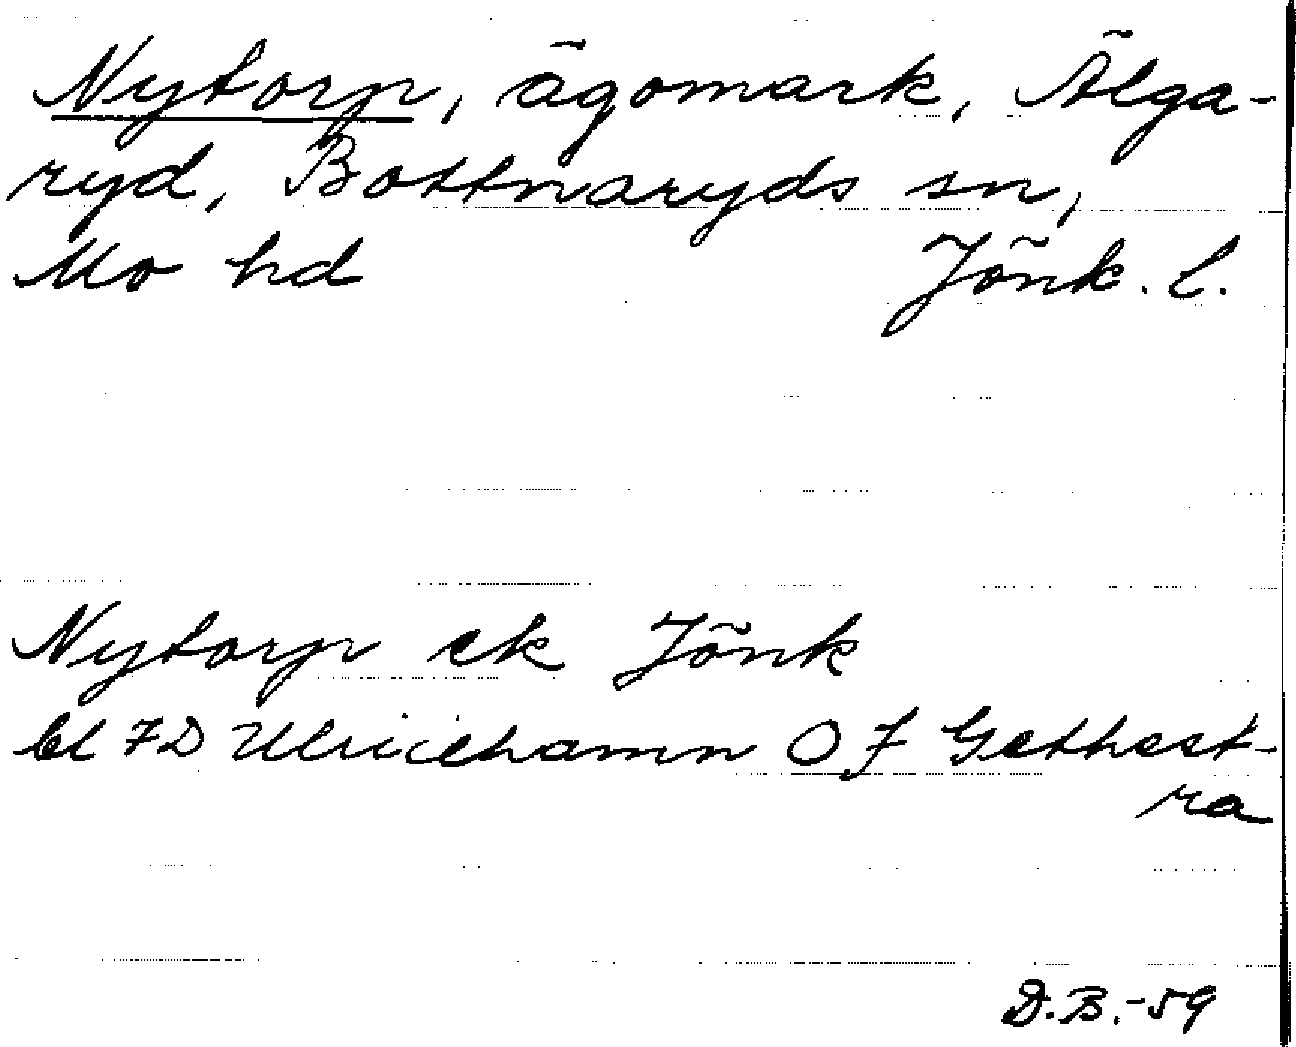 Nytorp, ägomark, Älga-
ryd, Bottnaryds sn,
Mo hd Jönk. l.
Nytorp ek Jönk
bl 7D Ulricehamn OJ Gethest-
ra
D.B.-59